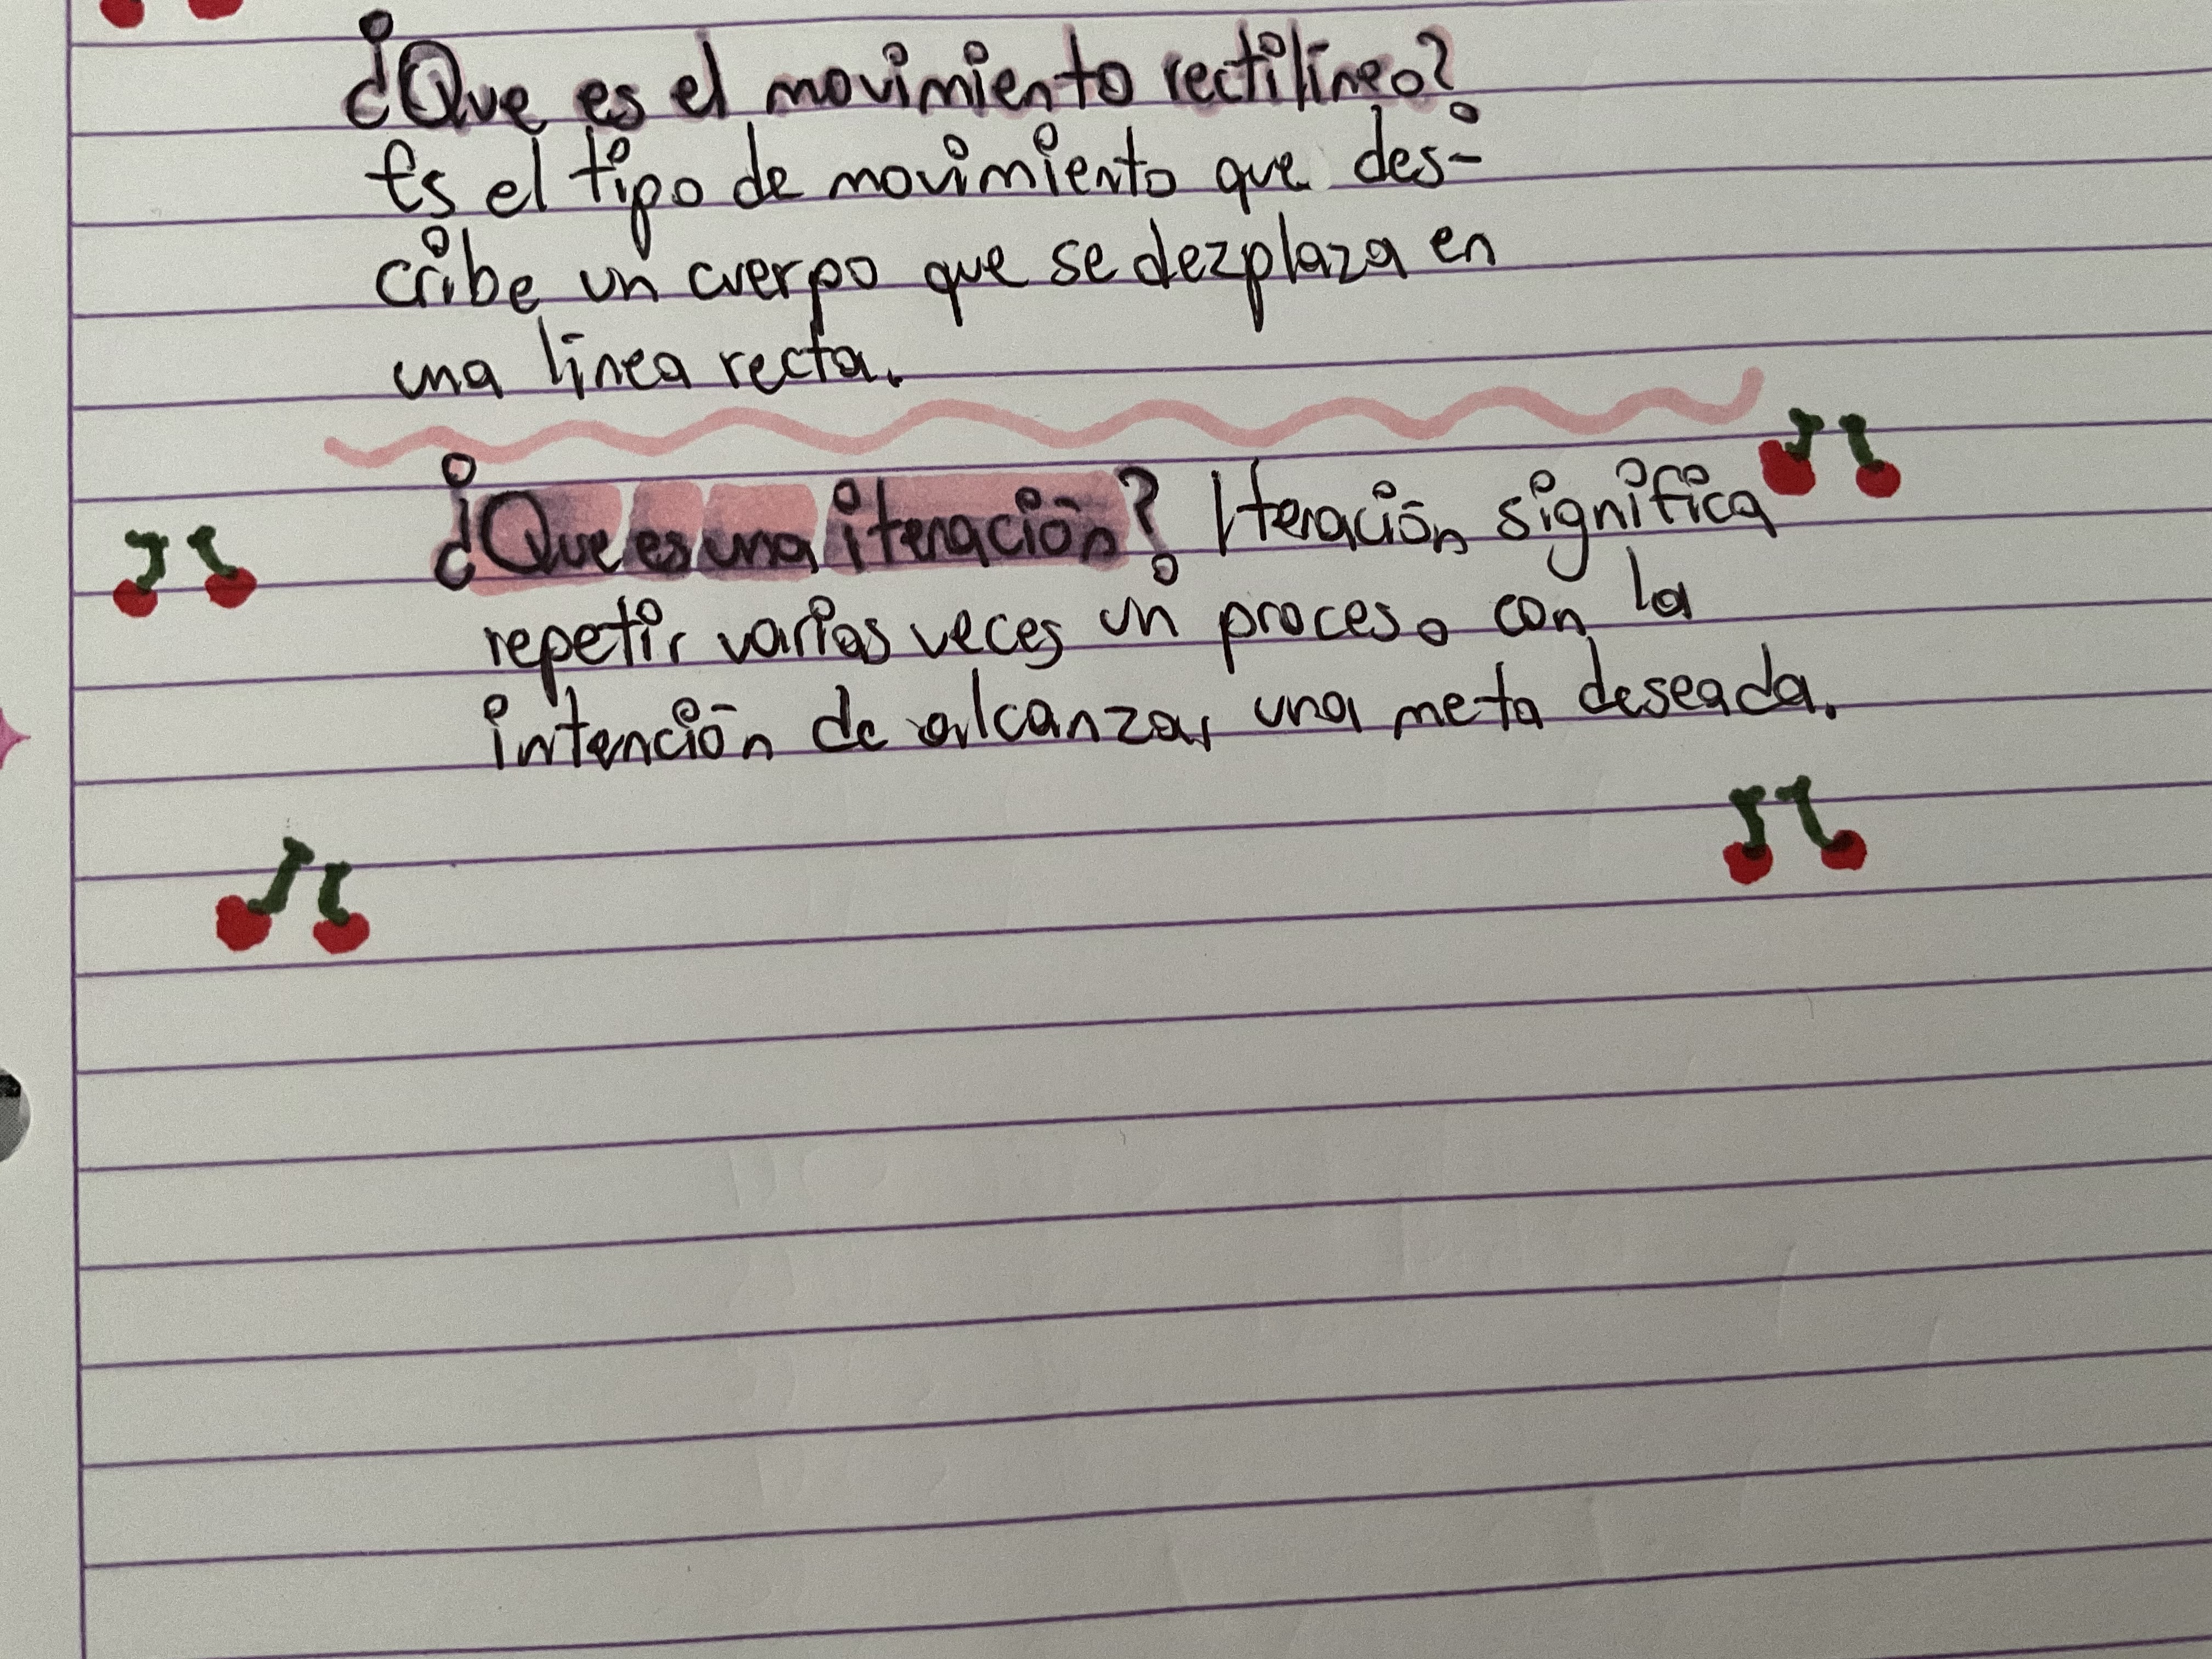 ¿Que es el movimiento rectilíneo?
Es el tipo de movimiento que des-
cribe un cuerpo que se dezplaza en
una línea recta.
¿Que es una iteración? Iteración significa
repetir varias veces un proceso con la
intención de alcanzar una meta deseada.